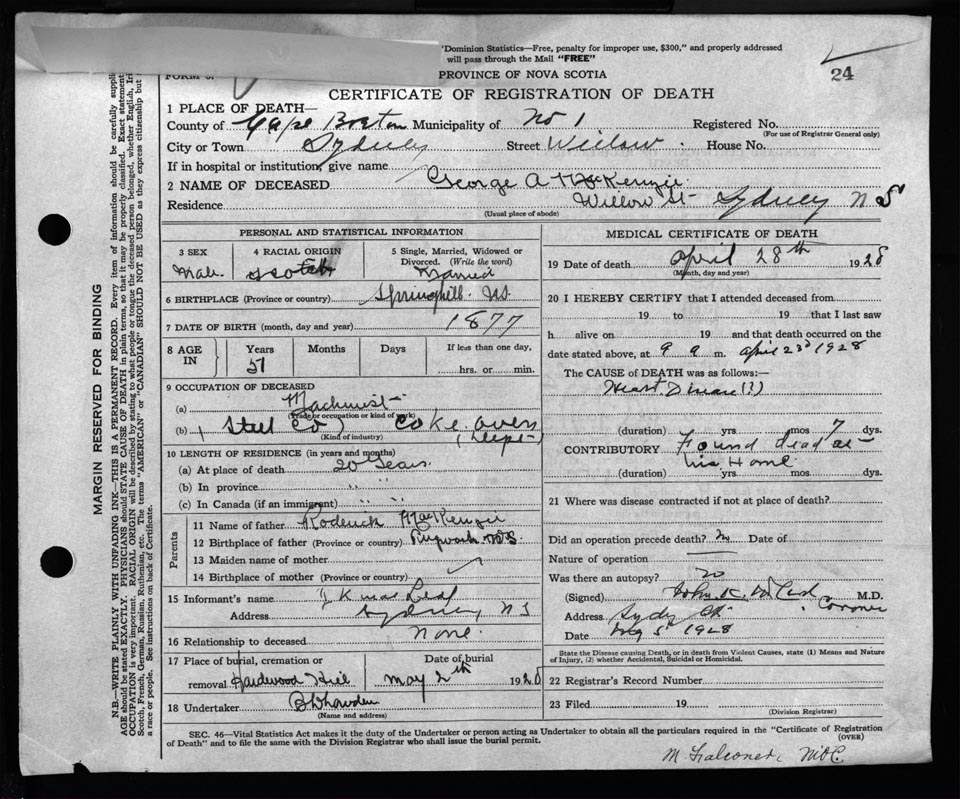 'Dominion Statistics—Free, penalty for improper use, $300," and properly addressed
will pass through the Mail "FREE"
PROVINCE OF NOVA SCOTIA
24
CERTIFICATE OF REGISTRATION OF DEATH
1 PLACE OF DEATH—
County of Cape Breton Municipality of No 1 Registered No.
(For use of Registrar General only)
City or Town Sydney Street Willow House No.
If in hospital or institution, give name
2 NAME OF DECEASED George A MacKenzie
Residence Willow St Sydney N S
(Usual place of abode)
PERSONAL AND STATISTICAL INFORMATION
3 SEX Male
4 RACIAL ORIGIN Scotch
5 Single, Married, Widowed or Divorced. (Write the word) Married
6 BIRTHPLACE (Province or country) Springhill NS
7 DATE OF BIRTH (month, day and year) 1877
8 AGE IN Years Months Days If less than one day,
51 hrs. or min.
9 OCCUPATION OF DECEASED
(a) Machinist
(Trade or occupation or kind of work)
(b) (Steel Co) Coke oven
(Kind of industry) (Dept)
10 LENGTH OF RESIDENCE (in years and months)
(a) At place of death 20 Years
(b) In province " "
(c) In Canada (if an immigrant) " "
Parents
11 Name of father Roderick MacKenzie
12 Birthplace of father (Province or country) Pugwash NS.
13 Maiden name of mother
14 Birthplace of mother (Province or country)
15 Informant's name J K
Address Sydney NS
16 Relationship to deceased None
17 Place of burial, cremation or removal Hardwood Hill
Date of burial May 2th 1928
18 Undertaker
(Name and address)
MEDICAL CERTIFICATE OF DEATH
19 Date of death April 28th 1928
(Month, day and year)
20 I HEREBY CERTIFY that I attended deceased from
19 to 19 that I last saw
h alive on 19 and that death occurred on the
date stated above, at 9 a m. April 23d 1928
The CAUSE of DEATH was as follows:—
Heart Disease (?)
(duration) yrs. mos 7 dys.
CONTRIBUTORY Found dead at
his Home
(duration) yrs. mos. dys.
21 Where was disease contracted if not at place of death?
Did an operation precede death? No Date of
Nature of operation
Was there an autopsy? no
(Signed) John K. M.D.
Coroner
Address Sydney
Date May 5 1928
State the Disease causing Death, or in death from Violent Causes, state (1) Means and Nature
of Injury, (2) whether Accidental, Suicidal or Homicidal.
22 Registrar's Record Number
23 Filed 19
(Division Registrar)
SEC. 46—Vital Statistics Act makes it the duty of the Undertaker or person acting as Undertaker to obtain all the particulars required in the "Certificate of Registration
of Death" and to file the same with the Division Registrar who shall issue the burial permit.
(OVER)
M. Falconer, MOC.
MARGIN RESERVED FOR BINDING
N.B.—WRITE PLAINLY WITH UNFADING INK—THIS IS A PERMANENT RECORD. Every item of information should be carefully suppli
AGE should be stated EXACTLY. PHYSICIANS should STATE CAUSE OF DEATH in plain terms, so that it may be properly classified. Exact statement
OCCUPATION is very important. RACIAL ORIGIN will be described by stating to what people or tongue the deceased person belonged, whether English, Iri
Scotch, French, German, Russian, Ruthenian, etc. The terms "AMERICAN" or "CANADIAN" SHOULD NOT BE USED as they express citizenship but
a race or people. See instructions on back of Certificate.